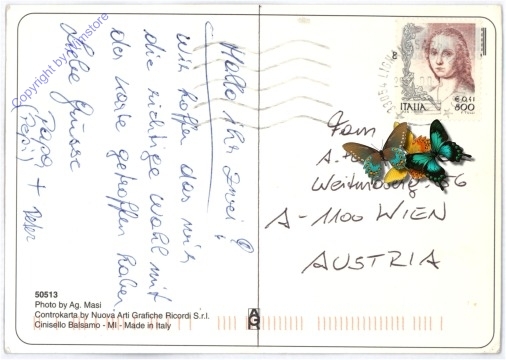 Hallo Ihr Zwei!
Wir hoffen das wir
die richtige Wahl mit
der Karte getroffen haben.
Liebe Grüsse
Papa + Peter
(Pepi)
Copyright by Ansichtskarten
ITALIA
€ 0,41
800
Fam
A-1100 WIEN
AUSTRIA
50513
Photo by Ag. Masi
Controkarta by Nuova Arti Grafiche Ricordi S.r.l.
Cinisello Balsamo - MI - Made in Italy